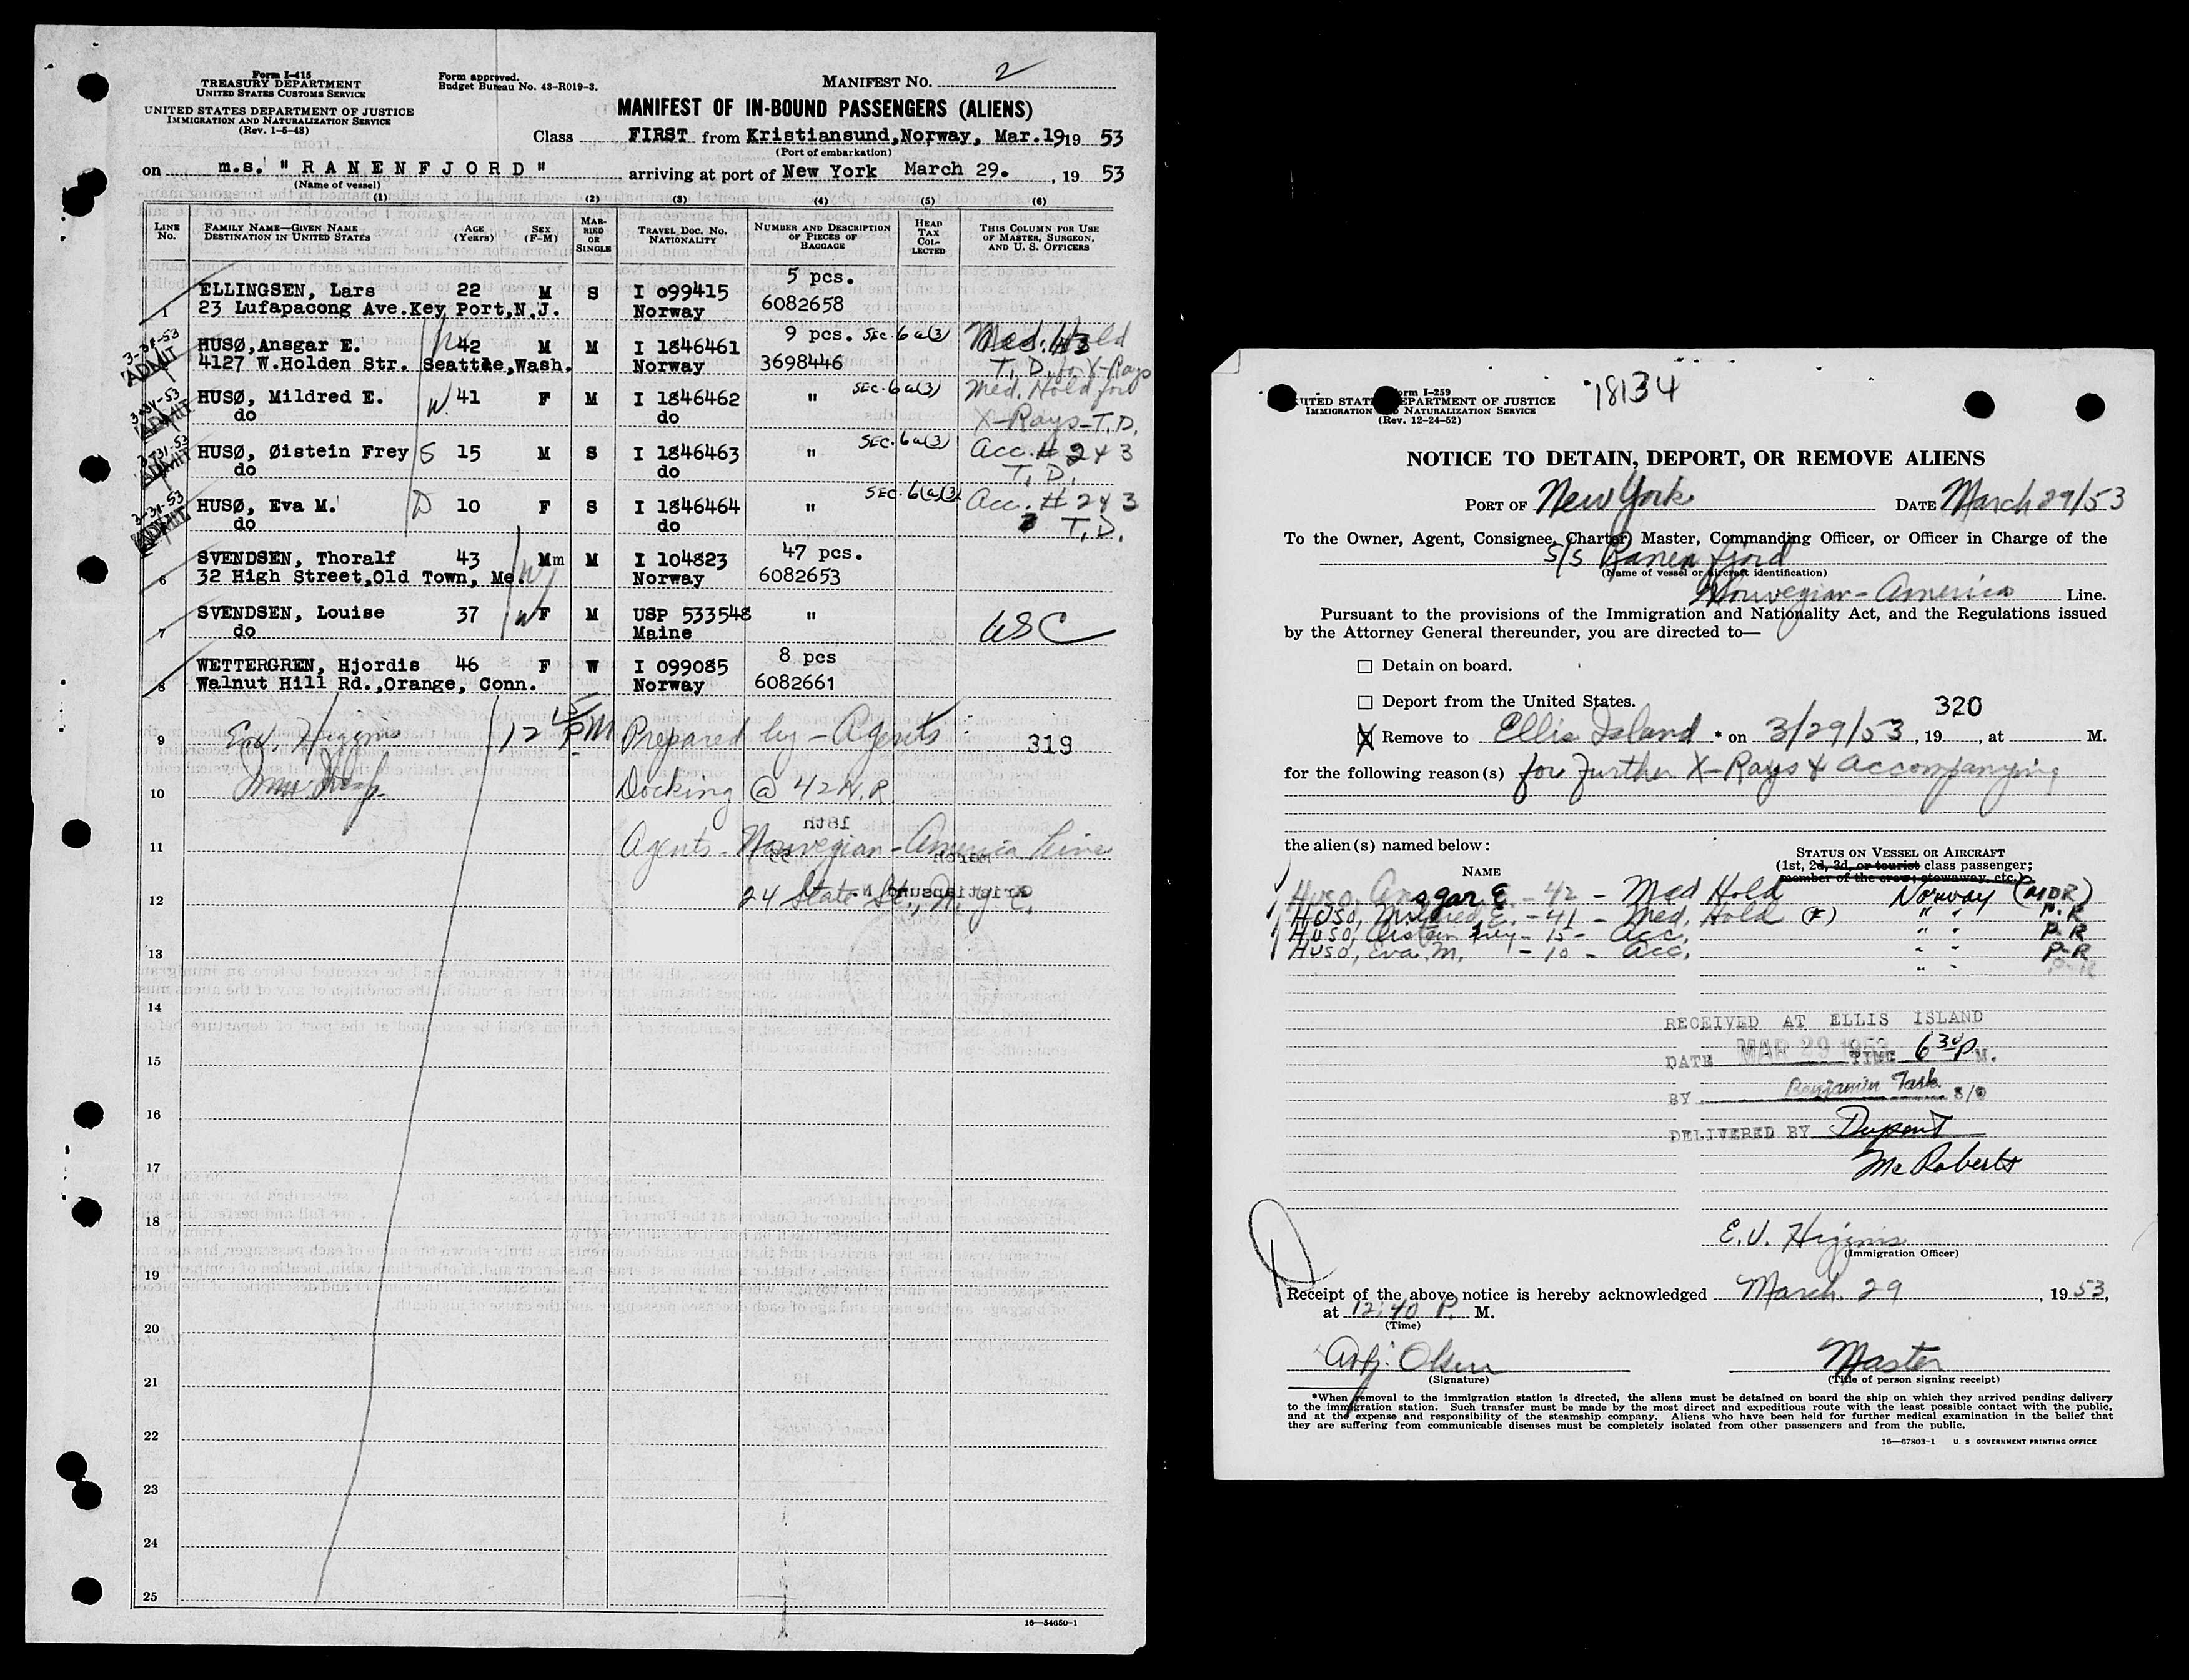 Form I-415
TREASURY DEPARTMENT
UNITED STATES CUSTOMS SERVICE
UNITED STATES DEPARTMENT OF JUSTICE
IMMIGRATION AND NATURALIZATION SERVICE
(Rev. 1-5-48)
Form approved.
Budget Bureau No. 43-R019-3.
MANIFEST NO. 2
MANIFEST OF IN-BOUND PASSENGERS (ALIENS)
Class FIRST from Kristiansund,Norway, Mar.19 19 53
(Port of embarkation)
on m.s. "RANENFJORD" arriving at port of New York March 29. , 19 53
(Name of vessel)
(1) (2) (3) (4) (5) (6)
LINE No. FAMILY NAME—GIVEN NAME DESTINATION IN UNITED STATES AGE (Years) SEX (F-M) MARRIED OR SINGLE TRAVEL DOC. NO. NATIONALITY NUMBER AND DESCRIPTION OF PIECES OF BAGGAGE HEAD TAX COLLECTED THIS COLUMN FOR USE OF MASTER, SURGEON, AND U. S. OFFICERS
5 pcs.
1 ELLINGSEN, Lars 22 M S I 099415 6082658
23 Lufapacong Ave.Key Port,N.J. Norway
3-31-53 ADMIT HUSØ,Ansgar E. 42 M M I 1846461 9 pcs. SEC. 6 a(3) Med. Hold
4127 W.Holden Str. Seattle,Wash. Norway 3698446 T.D. for X-Rays
3-31-53 ADMIT HUSØ, Mildred E. W. 41 F M I 1846462 " SEC. 6 a(3) Med. Hold for
do do X-Rays-T.D.
3-31-53 ADMIT HUSØ, Øistein Frey S 15 M S I 1846463 " SEC. 6 a(3) Acc. # 2 & 3
do do T.D.
3-31-53 ADMIT HUSØ, Eva M. D 10 F S I 1846464 " SEC. 6(a)(3) Acc. # 2 & 3
do do T.D.
6 SVENDSEN, Thoralf 43 Mm M I 104823 47 pcs.
32 High Street,Old Town, Me. Norway 6082653
7 SVENDSEN, Louise 37 W F M USP 533548 " USC
do Maine
8 WETTERGREN, Hjordis 46 F W I 099085 8 pcs
Walnut Hill Rd.,Orange, Conn. Norway 6082661
9 E.V. Higgins 12 45 PM Prepared by - Agents 319
10 Docking @ 42 N.R.
11 Agents - Norwegian-America Line
12 24 State St., N.Y.C.
13
14
15
16
17
18
19
20
21
22
23
24
25
16—54650-1
Form I-259
UNITED STATES DEPARTMENT OF JUSTICE
IMMIGRATION AND NATURALIZATION SERVICE
(Rev. 12-24-52)
18134
NOTICE TO DETAIN, DEPORT, OR REMOVE ALIENS
PORT OF New York DATE March 29/53
To the Owner, Agent, Consignee, Charter, Master, Commanding Officer, or Officer in Charge of the
S/S Ranenfjord
(Name of vessel or aircraft identification)
Norwegian-America Line.
Pursuant to the provisions of the Immigration and Nationality Act, and the Regulations issued
by the Attorney General thereunder, you are directed to—
☐ Detain on board.
☐ Deport from the United States.
320
☒ Remove to Ellis Island * on 3/29/53 , 19 , at M.
for the following reason(s) for further X-Rays & accompanying
the alien(s) named below:
NAME
STATUS ON VESSEL OR AIRCRAFT
(1st, 2d, 3d, or tourist class passenger;
member of the crew; stowaway, etc.)
HUSO, Ansgar E. - 42 - Med Hold Norway (MDR)
HUSO, Mildred E. - 41 - Med. Hold (F) " " P.R
HUSO, Oistein Frey - 15 - Acc. " " P-R
HUSO, Eva M. - 10 - Acc. " " P-R
RECEIVED AT ELLIS ISLAND
DATE MAR 29 1953 TIME 6 30 P M.
BY Benjamin Task S/O
DELIVERED BY Dupont
McRoberts
E.V. Higgins
(Immigration Officer)
Receipt of the above notice is hereby acknowledged March 29 , 19 53,
at 12:40 P. M.
(Time)
Olsen Master
(Signature) (Title of person signing receipt)
*When removal to the immigration station is directed, the aliens must be detained on board the ship on which they arrived pending delivery
to the immigration station. Such transfer must be made by the most direct and expeditious route with the least possible contact with the public,
and at the expense and responsibility of the steamship company. Aliens who have been held for further medical examination in the belief that
they are suffering from communicable diseases must be completely isolated from other passengers and from the public.
16—67803-1 U. S. GOVERNMENT PRINTING OFFICE